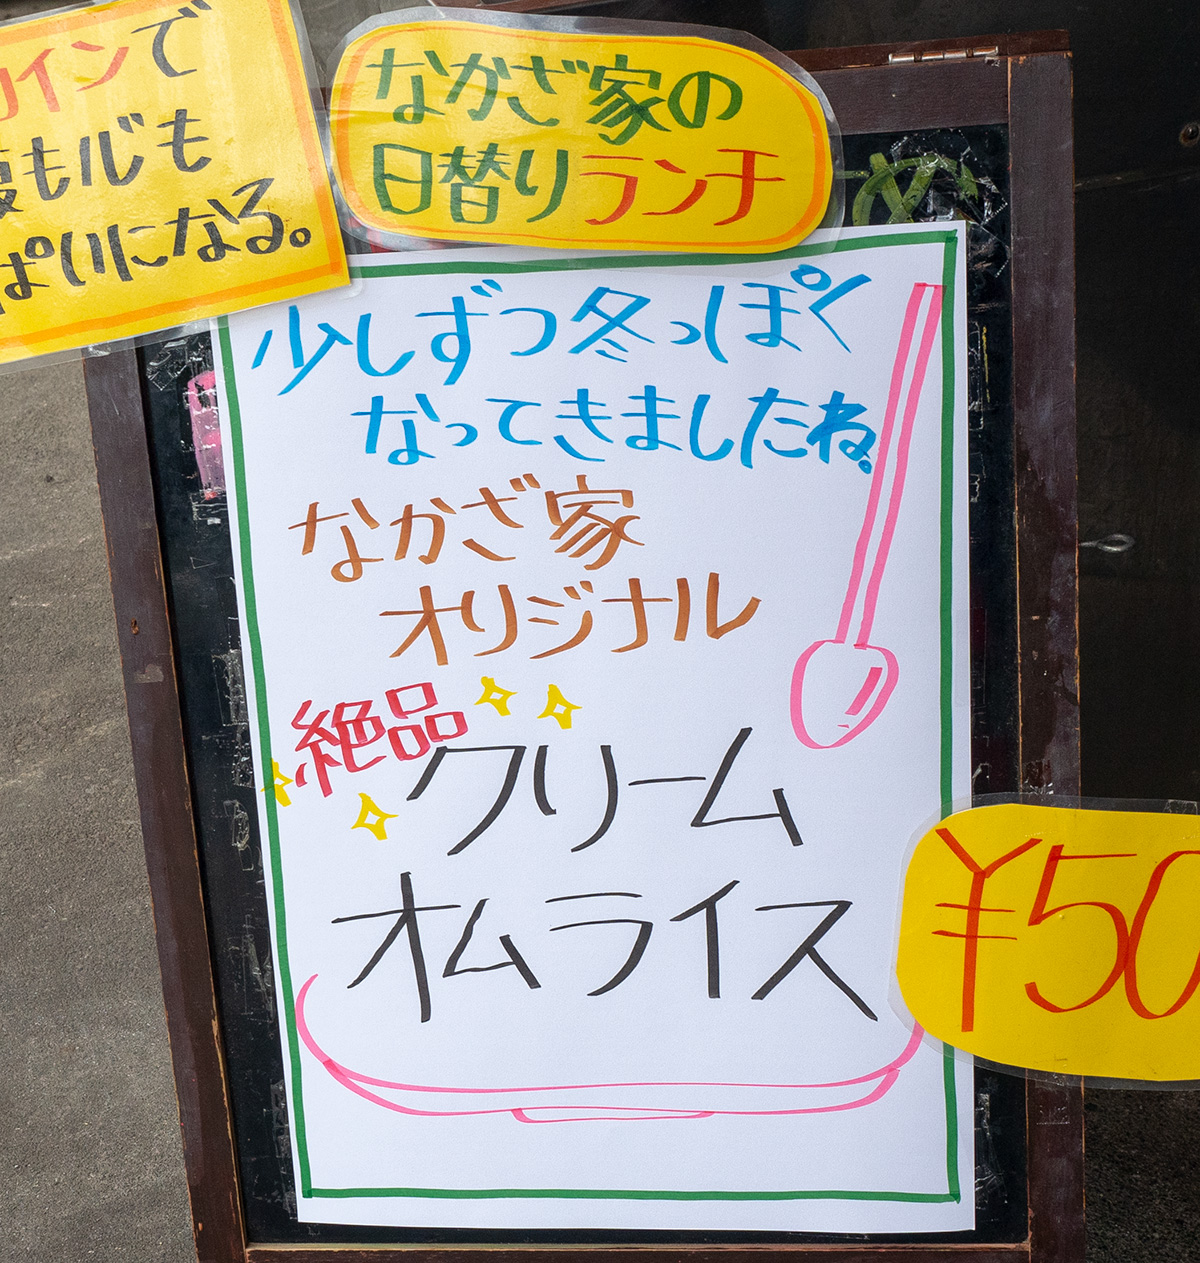 インで
も心も
ぱいになる。
なかざ家の
日替りランチ
少しずつ冬っぽく
なってきましたね。
なかざ家
オリジナル
絶品
クリーム
オムライス
¥50